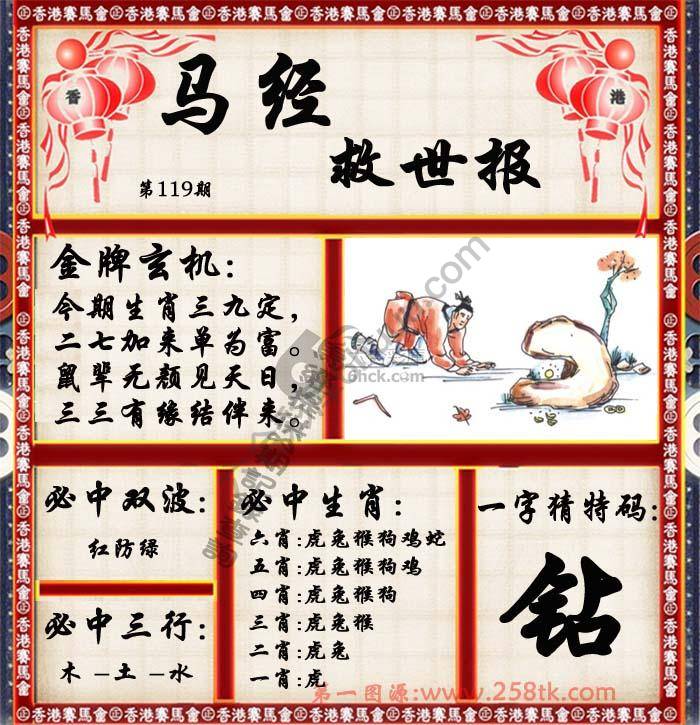 香港賽馬會
香
港
马经
救世报
第119期
金牌玄机:
今期生肖三九定，
二七加来单为富。
鼠辈无颜见天日，
三三有缘结伴来。
必中双波:
红防绿
必中三行:
木－土－水
必中生肖:
六肖:虎兔猴狗鸡蛇
五肖:虎兔猴狗鸡
四肖:虎兔猴狗
三肖:虎兔猴
二肖:虎兔
一肖:虎
一字猜特码:
钻
第一图源:www.258tk.com